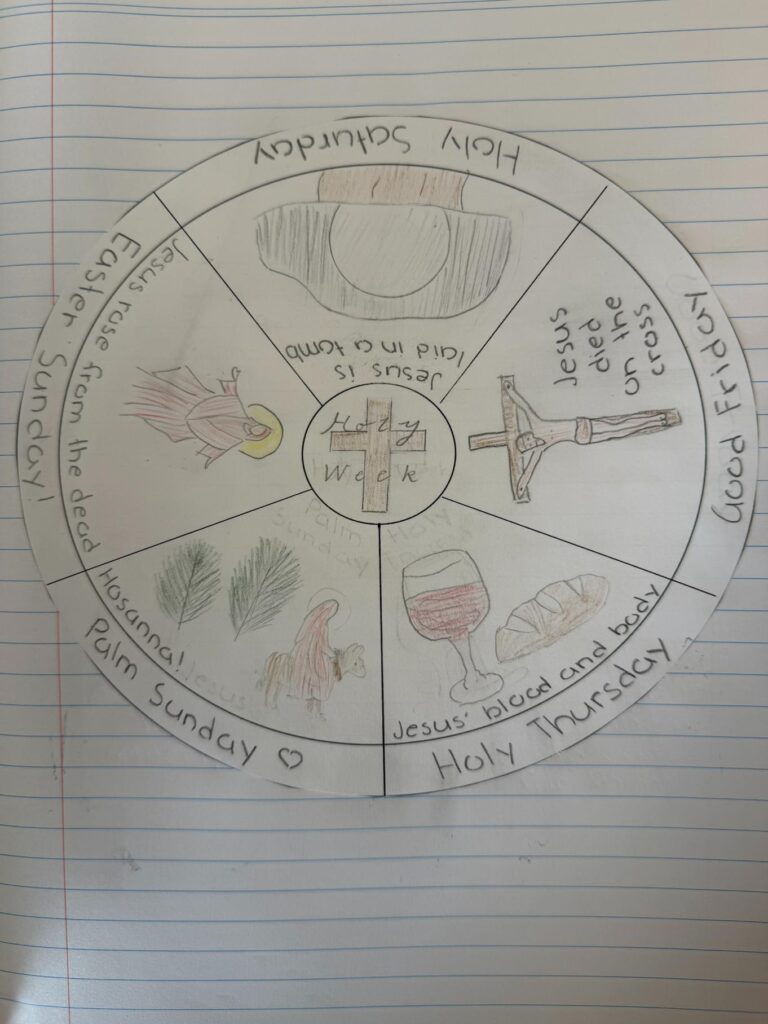 Holy
Week
Palm Sunday ♡
Hosanna!
Jesus
Palm
Sunday
Holy Thursday
Jesus' blood and body
Holy
Good Friday
Jesus
died
on the
cross
Holy Saturday
Jesus is
laid in a tomb
Easter Sunday!
Jesus rose from the dead